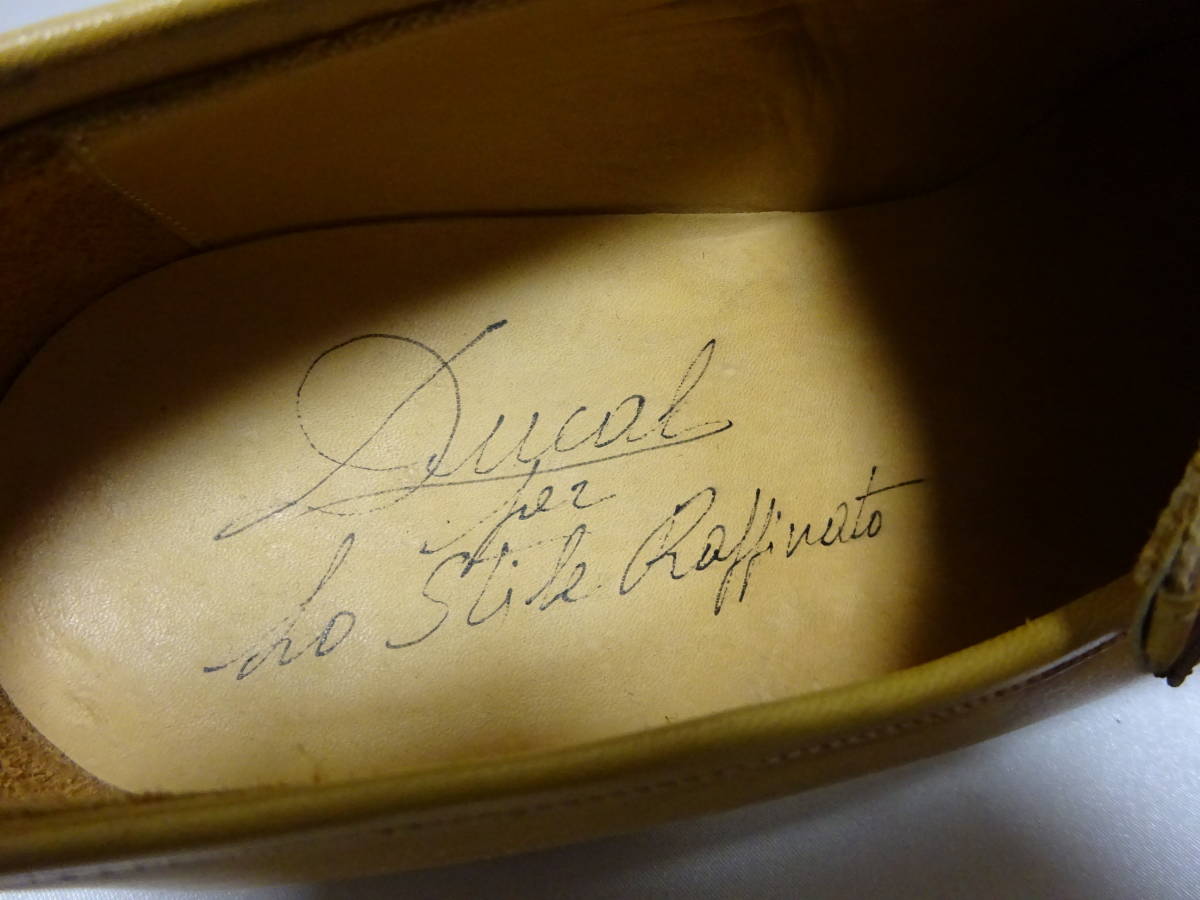 Ducal
per
Lo Stile Raffinato